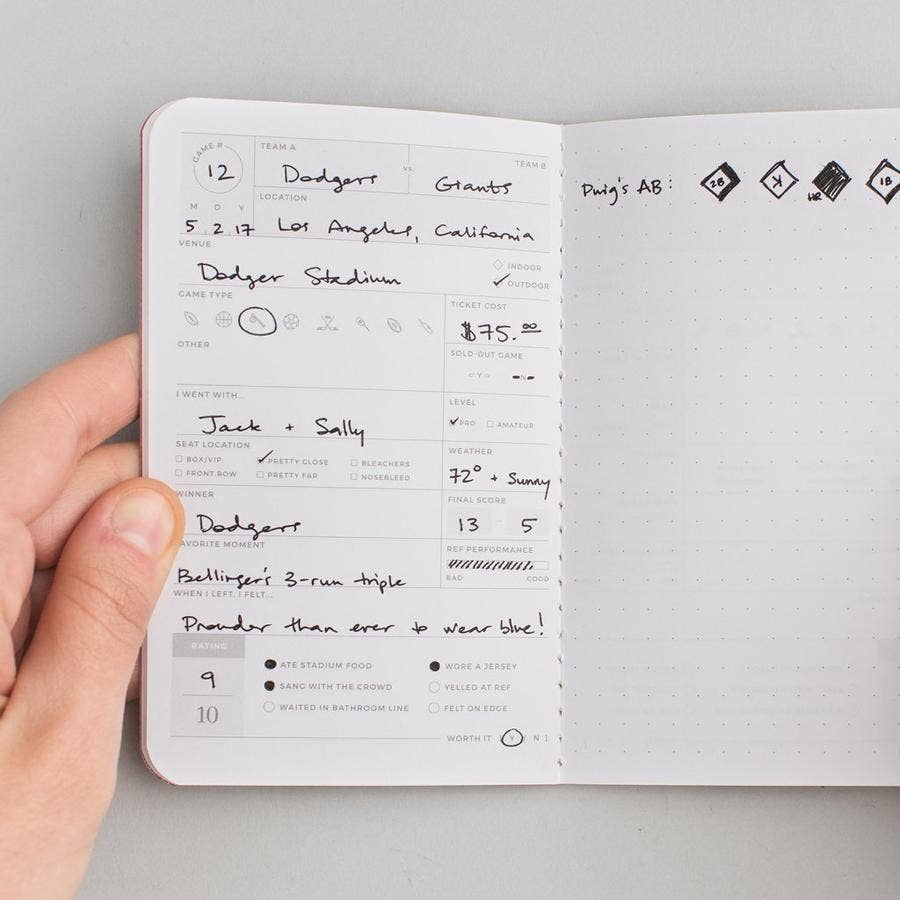 GAME #
12
TEAM A
VS.
TEAM B
Dodgers Giants
M D Y
5 2 17
LOCATION
Los Angeles, California
VENUE
Dodger Stadium
INDOOR
OUTDOOR
GAME TYPE
OTHER
TICKET COST
$75.00
SOLD-OUT GAME
Y N
I WENT WITH...
Jack + Sally
LEVEL
PRO AMATEUR
SEAT LOCATION
BOX/VIP PRETTY CLOSE BLEACHERS
FRONT ROW PRETTY FAR NOSEBLEED
WEATHER
72° + Sunny
WINNER
Dodgers
FINAL SCORE
13 - 5
AVORITE MOMENT
Bellinger's 3-run triple
REF PERFORMANCE
BAD GOOD
WHEN I LEFT, I FELT...
Prouder than ever to wear blue!
RATING
9
10
ATE STADIUM FOOD WORE A JERSEY
SANG WITH THE CROWD YELLED AT REF
WAITED IN BATHROOM LINE FELT ON EDGE
WORTH IT [ Y / N ]
Puig's AB: 2B K HR 1B